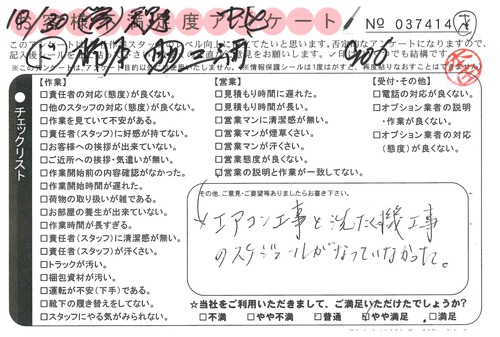 お客様満足度アンケート
No 037414
【作業】
□責任者の対応(態度)が良くない。
□他のスタッフの対応(態度)が良くない。
□作業を見ていて不安がある。
□責任者(スタッフ)に好感が持てない。
□お客様への挨拶が出来ていない。
□ご近所への挨拶・気遣いが無い。
□作業開始前の内容確認がなかった。
□作業開始時間が遅れた。
□荷物の取り扱いが雑である。
□お部屋の養生が出来ていない。
□作業時間が長すぎる。
□責任者(スタッフ)に清潔感が無い。
□責任者(スタッフ)が汗くさい。
□トラックが汚い。
□梱包資材が汚い。
□運転が不安(下手)である。
□靴下の履き替えをしてない。
□スタッフにやる気がみられない。
【営業】
□見積もり時間に遅れた。
□見積もり時間が長い。
□営業マンに清潔感が無い。
□営業マンが煙草くさい。
□営業マンが汗くさい。
□営業態度が良くない。
□営業の説明と作業が一致してない。
【受付・その他】
□電話の対応が良くない。
□オプション業者の説明
・作業が良くない。
□オプション業者の対応
(態度)が良くない。
チェックリスト
その他、ご意見・ご要望等ありましたらお書き下さい。
エアコン工事と洗たく機工事
のスケジュールがなっていなかった。
☆当社をご利用いただきまして、ご満足いただけたでしょうか?
□不満 □やや不満 □普通 □やや満足 □満足